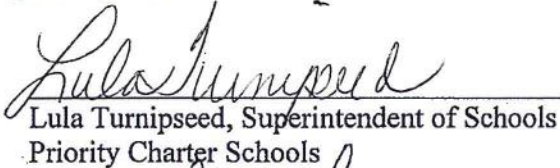 Lula Turnipseed
Lula Turnipseed, Superintendent of Schools
Priority Charter Schools